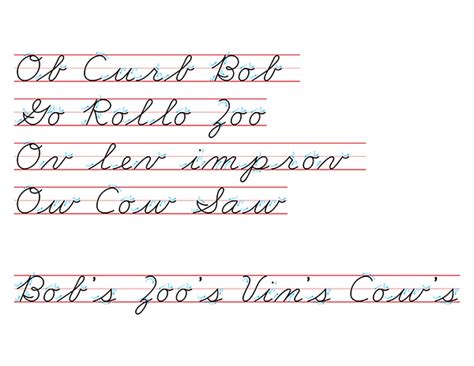 Ob Curb Bob
Go Rollo Zoo
Ov lev improv
Ow Cow Saw
Bob's Zoo's Vin's Cow's